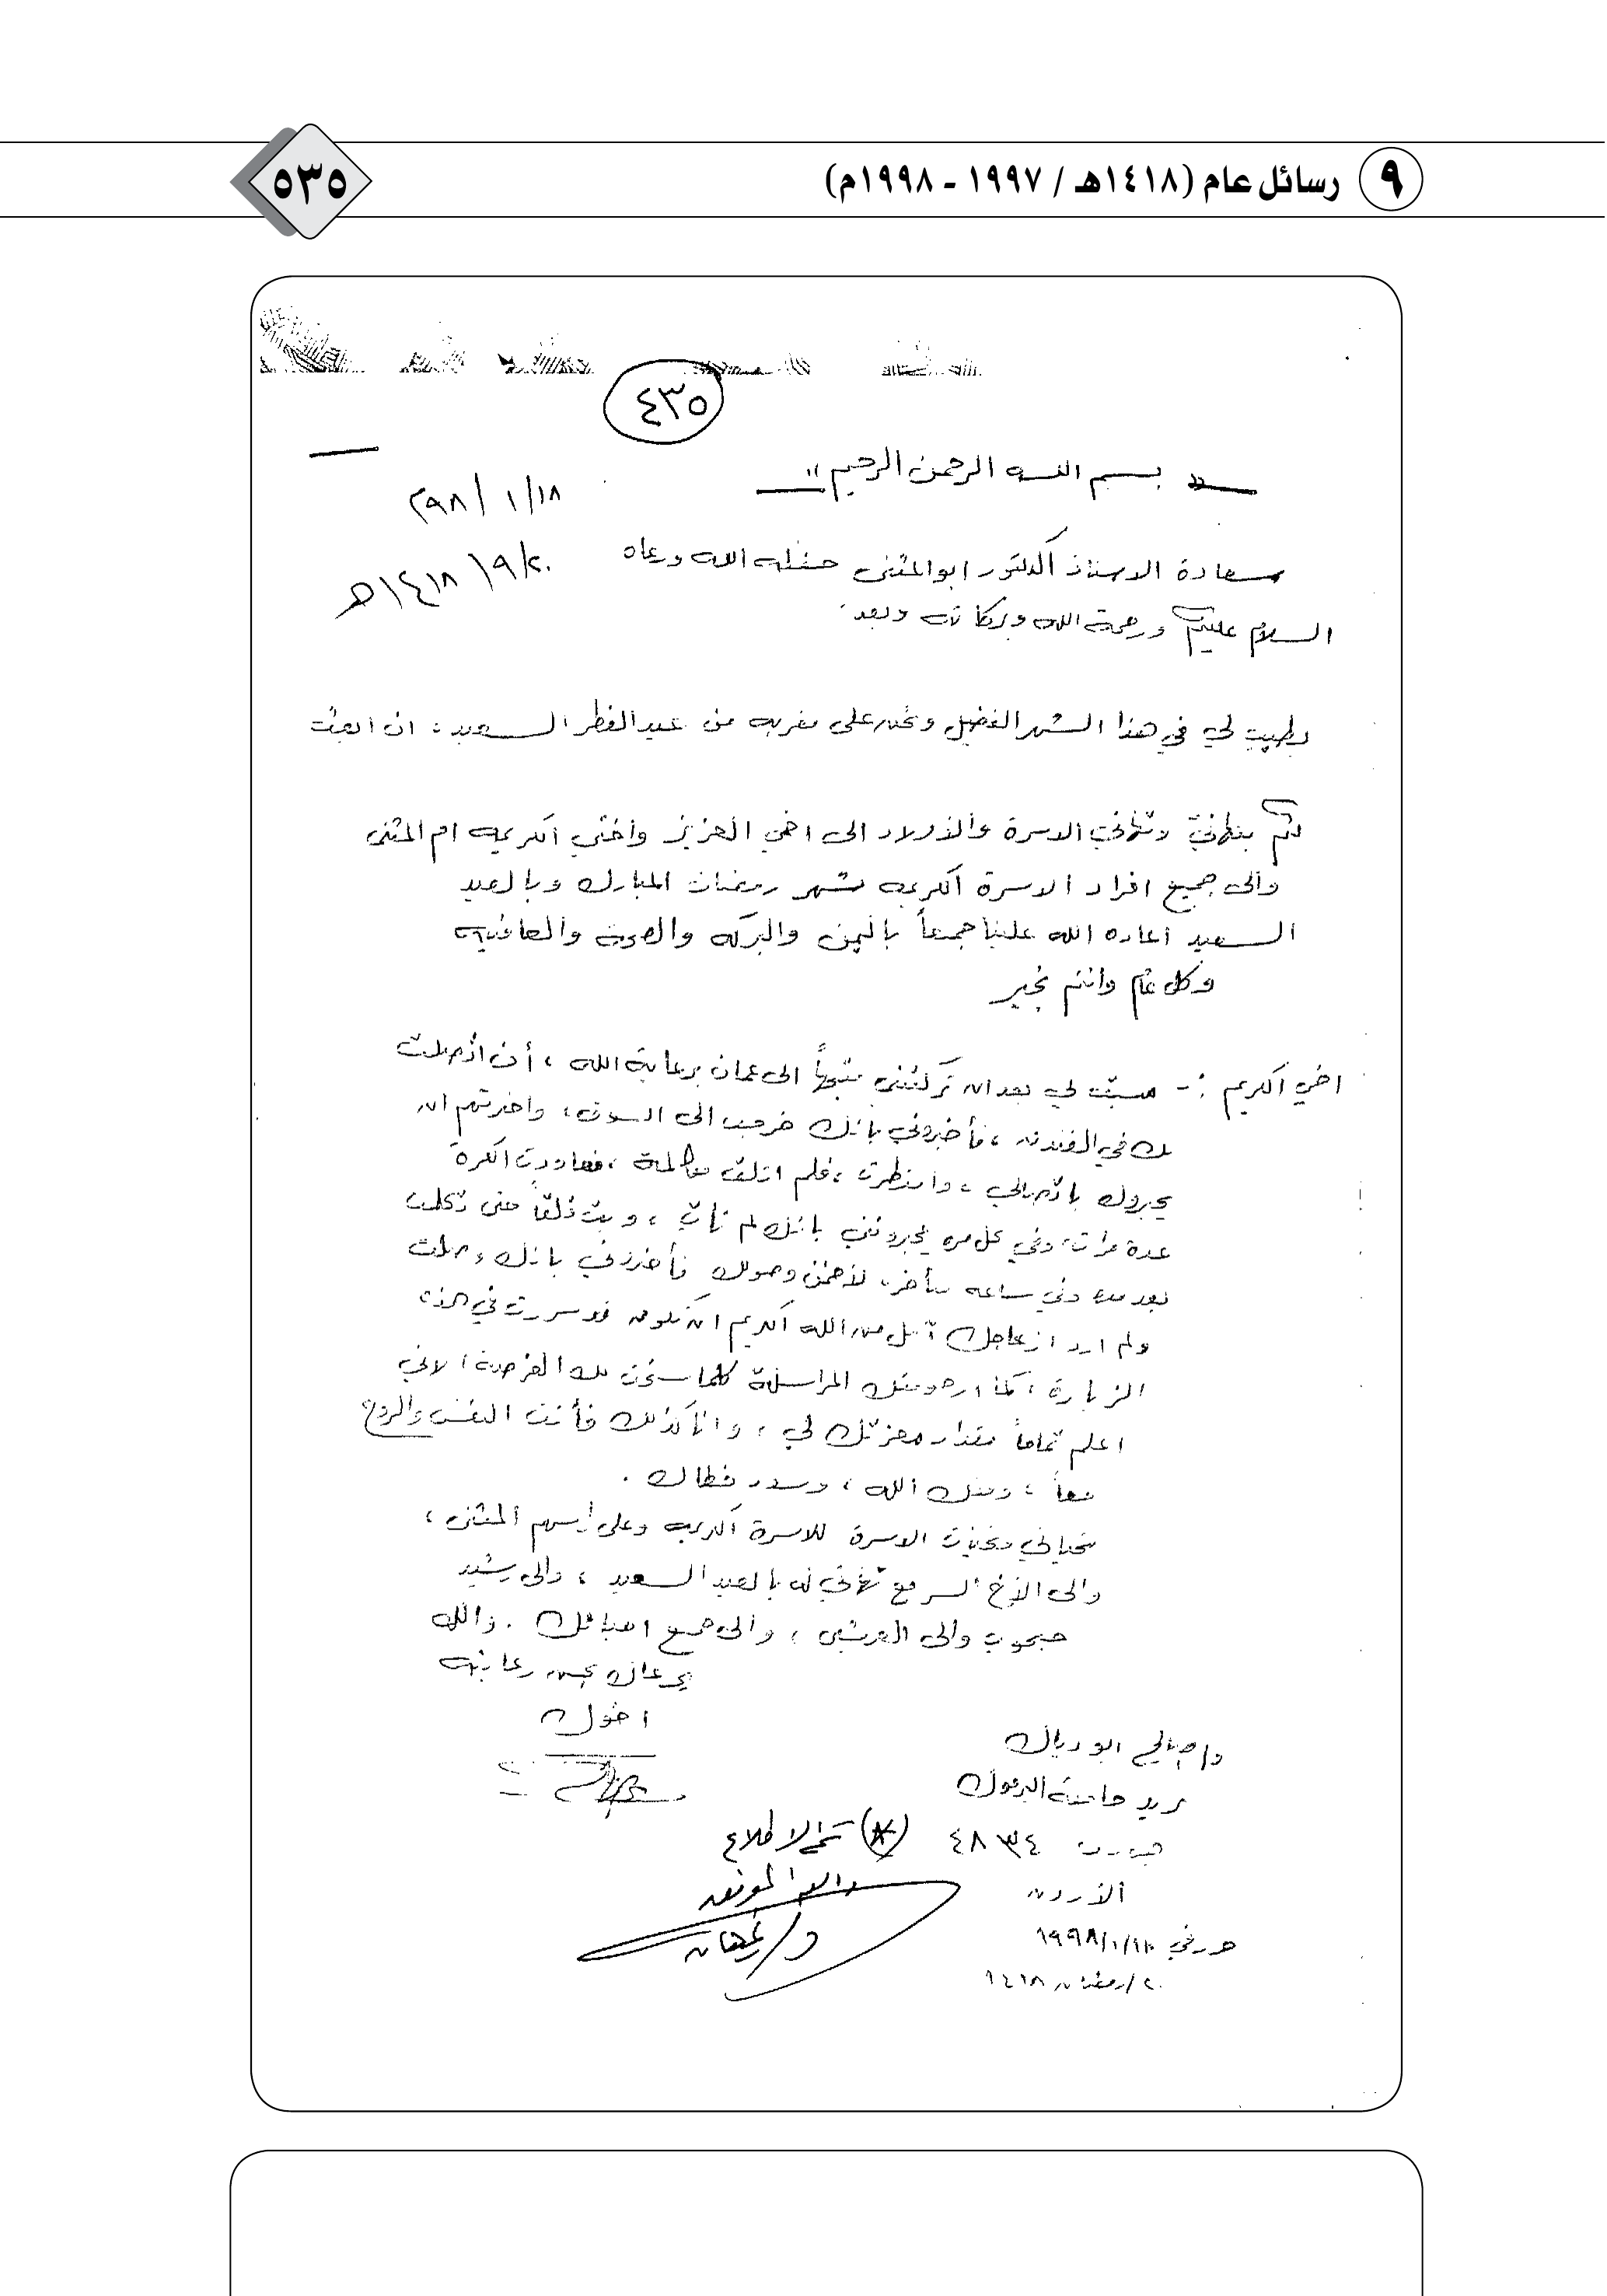 ٩ رسائل عام (١٤١٨هـ / ١٩٩٧ - ١٩٩٨م)
٥٣٥
٤٣٥
بسم الله الرحمن الرحيم
١٨/١/٩٨م
٢٠/٩/١٤١٨هـ
سعادة الاستاذ الدكتور ابو المثنى حفظه الله ورعاه
السلام عليكم ورحمة الله وبركاته وبعد:
يطيب لي في هذا الشهر الفضيل ونحن على مقربه من عيد الفطر السعيد، ان ابعث
لكم بتهاني وتهاني الاسرة والأولاد الى اخي العزيز وأختي الكريمه ام المثنى
والى جميع افراد الاسرة الكريمه بشهر رمضان المبارك وبالعيد
السعيد أعاده الله علينا جميعاً باليمن والبركه والصحة والعافيه
وكل عام وانتم بخير
اخي الكريم :- لي بعد ان تركتني متجهاً الى عمان برعاية الله ، أن اتصلت
بك في الفندق ، فأخبروني بانك خرجت الى السوق، واخبرتهم ان
يخبروك باتصالي ، وانتظرت ، فلم اتلق مكالمة ، فعاودت الكرة
عدة مرات، وفي كل مره يخبرونني بانك لم تأت ، وبت قلقاً حتى تكلمت
بعد وفي ساعه وصولك فأخبرني بانك وصلت
ولم ارد ازعاجك آمل من الله الكريم ان تكون قد سررت في هذه
الزيارة ، كما ارجو منك المراسلة كلما سنحت لك الفرصة، لاني
اعلم تماماً مقدار معزتك لي ، وانا كذلك فأنت النفس والروح
معاً ، وفقك الله ، وسدد خطاك .
تحياتي وتحيات الاسرة للاسرة الكريمه وعلى رأسهم المثنى ،
والى الأخ مع تهاني له بالعيد السعيد ، والى رشيد
والى ، والى جميع احبائك . والله
يرعاك بحسن رعايته
اخوك
د/ صالح ابو دياك
بريد جامعة اليرموك
٤٨٣٤
الأردن
(*) تم الاطلاع
والله الموفق
١٩٩٨/١/
٢٠/رمضان ١٤١٨